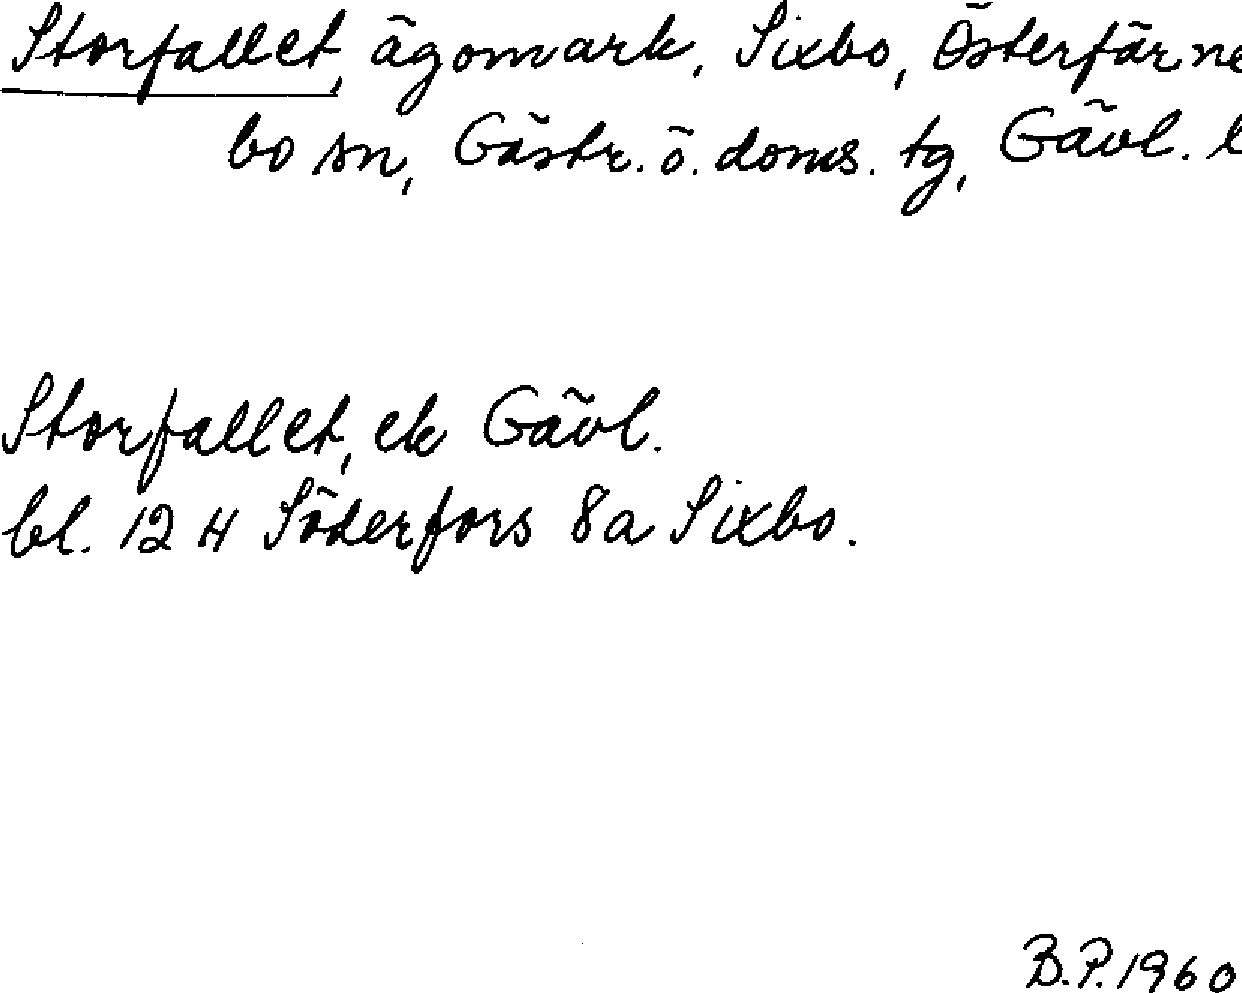 Storfallet, ägomark, Sixbo, Österfärne
bo sn, Gästr. ö. doms. tg, Gävl. l
Storfallet, ek Gävl.
bl. 12 H Söderfors 8a Sixbo.
B.P. 1960